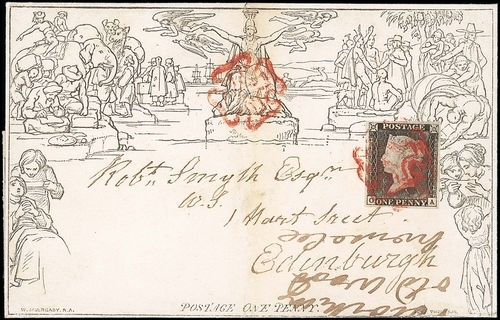 POSTAGE
ONE PENNY
Robt. Smyth Esqr.
W.S.
1 Hart Street
Edinburgh
POSTAGE ONE PENNY.
W. MULREADY, R.A.